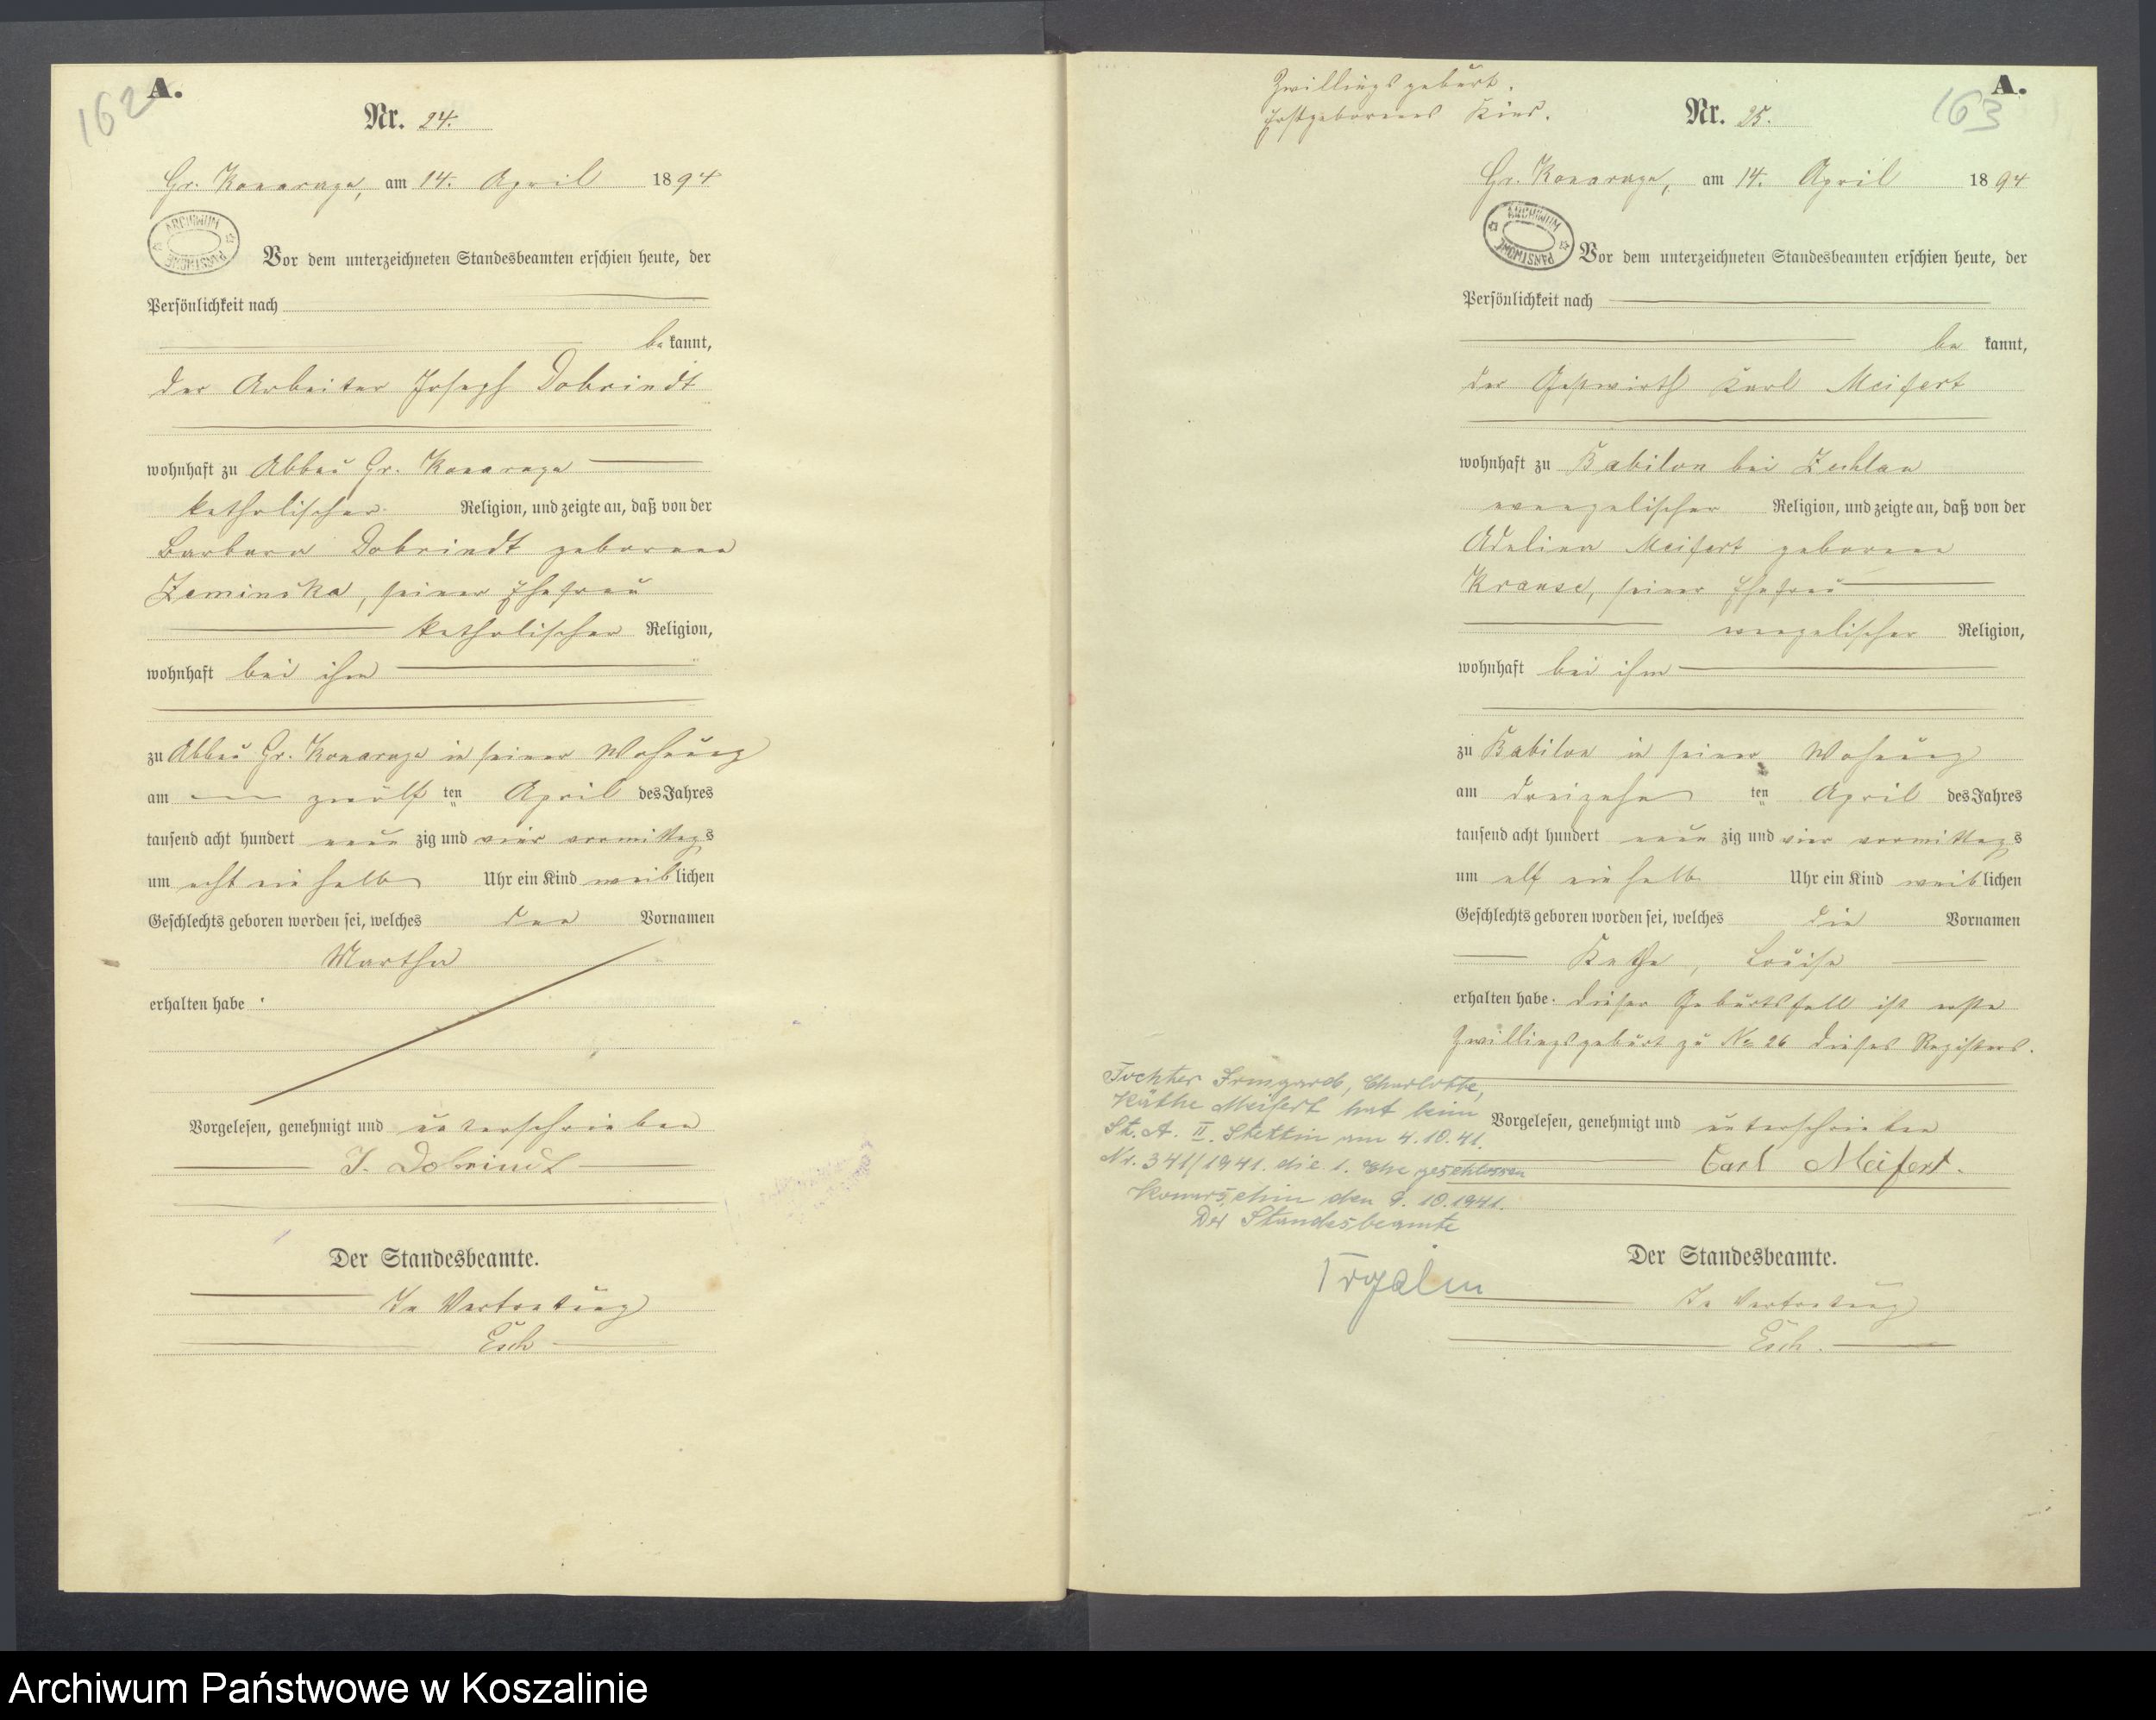 162
A.
Nr. 24.
Gr. Konarzyn, am 14. April 1894
ARCHIWUM PAŃSTWOWE
Vor dem unterzeichneten Standesbeamten erschien heute, der
Persönlichkeit nach
be kannt,
der Arbeiter Joseph Dobrindt
wohnhaft zu Abbau Gr. Konarzyn
katholischer Religion, und zeigte an, daß von der
Barbara Dobrindt geborenen
Zeminska, seiner Ehefrau
katholischer Religion,
wohnhaft bei ihm
zu Abbau Gr. Konarzyn in seiner Wohnung
am zwölf ten April des Jahres
tausend acht hundert neun zig und vier vormittags
um acht ein halb Uhr ein Kind weiblichen
Geschlechts geboren worden sei, welches den Vornamen
Martha
erhalten habe
Vorgelesen, genehmigt und unterschrieben
J. Dobrindt
Der Standesbeamte.
In Vertretung
Esch
Zwillingsgeburt.
Erstgeborenes Kind.
A.
163
Nr. 25.
Gr. Konarzyn, am 14. April 1894
ARCHIWUM PAŃSTWOWE
Vor dem unterzeichneten Standesbeamten erschien heute, der
Persönlichkeit nach
be kannt,
der Gastwirth Karl Meifert
wohnhaft zu Babilon bei Zechlau
evangelischer Religion, und zeigte an, daß von der
Adeline Meifert geborene
Krause, seiner Ehefrau
evangelischer Religion,
wohnhaft bei ihm
zu Babilon in seiner Wohnung
am dreizehn ten April des Jahres
tausend acht hundert neun zig und vier vormittags
um elf ein halb Uhr ein Kind weiblichen
Geschlechts geboren worden sei, welches die Vornamen
Käthe, Louise
erhalten habe. Dieser Geburtsfall ist erste
Zwillingsgeburt zu No 26 dieses Registers.
Tochter Irmgard, Charlotte,
Käthe Meifert hat beim
St. A. II. Stettin am 4.10.41.
Nr. 341/1941. die 1. Ehe geschlossen
Konarschin den 9.10.1941.
Der Standesbeamte
Vorgelesen, genehmigt und unterschrieben
Carl Meifert.
Der Standesbeamte.
In Vertretung
Esch.
Archiwum Państwowe w Koszalinie